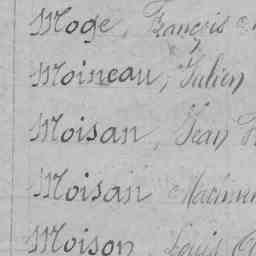 Moge, François
Moineau, Julien
Moisan, Jean
Moisan
Moison, Louis